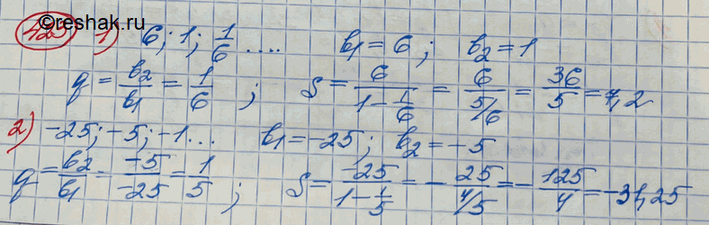 ©reshak.ru
425 1) 6; 1; 1/6 .... b₁ = 6; b₂ = 1
q = b₂/b₁ = 1/6; S = 6/(1 - 1/6) = 6/(5/6) = 36/5 = 7,2
2) -25; -5; -1... b₁ = -25; b₂ = -5
q = b₂/b₁ = -5/-25 = 1/5; S = -25/(1 - 1/5) = - 25/(4/5) = - 125/4 = -31,25